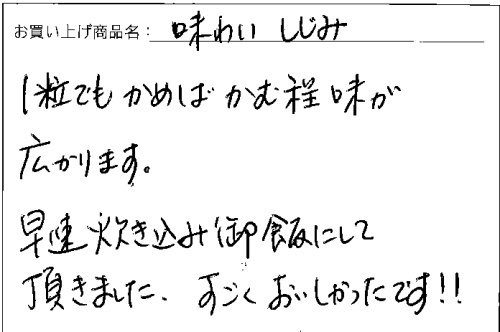 お買い上げ商品名: 味わい しじみ
1粒でも かめば かむ程 味が
広がります。
早速 炊き込み御飯にして
頂きました、すごく おいしかったです!!